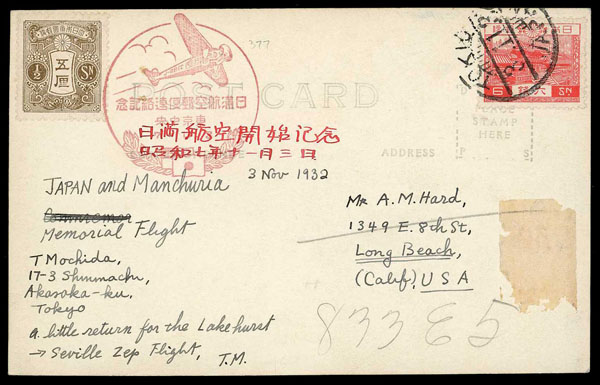 大日本帝國郵便
½ SN
五厘
377
日満航空郵便連絡記念
東京中央
POST CARD
日满航空開始记念
昭和七年十一月三日
3 Nov 1932
ADDRESS
PLACE
STAMP
HERE
TOKYO
6 六 SN
JAPAN and Manchuria
Memorial Flight
T Mochida,
17-3 Shinmachi,
Akasaka-ku,
Tokyo
a little return for the Lakehurst
→ Seville Zep Flight, T.M.
Mr A.M. Hard,
1349 E. 8th St,
Long Beach,
(Calif), USA
833E5